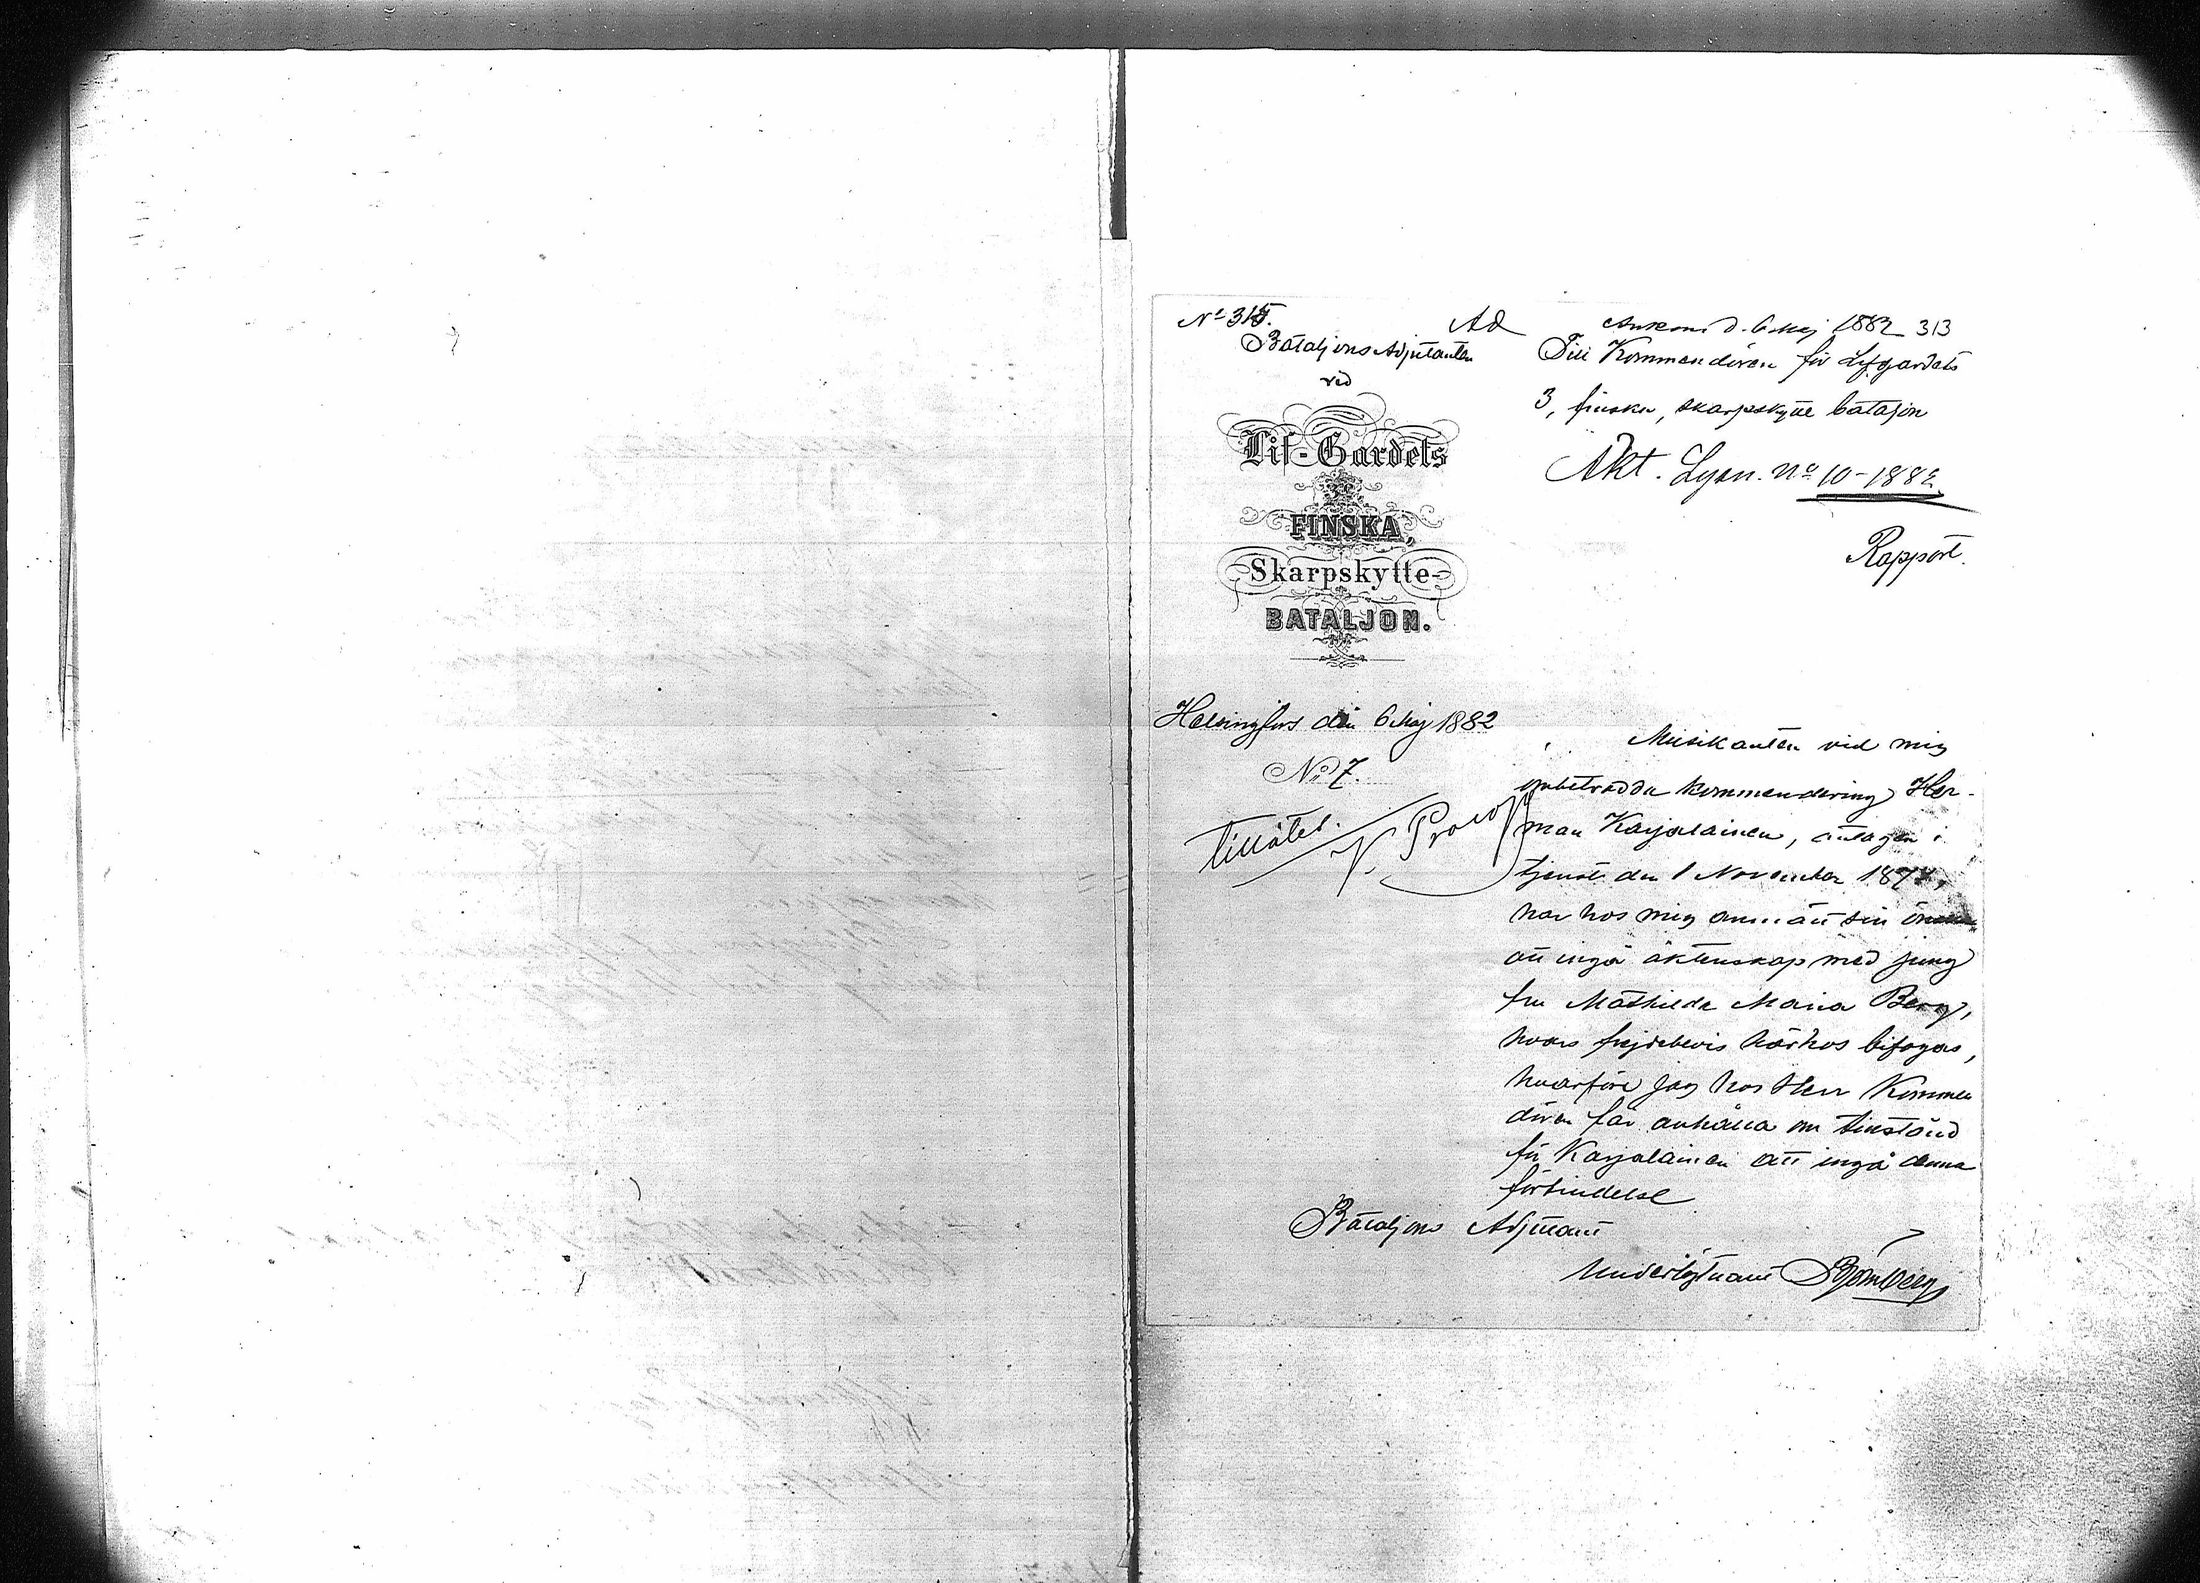 No 315.
Ad
Bataljons Adjutanten
ved
Lif-Gardets
3e
FINSKA,
Skarpskytte-
BATALJON.
Helsingfors den 6 Maj 1882
No 7.
Tillåtes.
V. Procopé
Ankom d. 6 Maj 1882 313
Till Kommendören för Lifgardets
3, finska, skarpskytte bataljon
Akt. Lysn. No 10-1882.
Rapport.
Musikanten vid mig
anbetrodda kommendering Her-
man Karjalainen, antagen i
tjenst den 1 November 187
har hos mig anmält sin önskan
att ingå äktenskap med jung
fru Mathilda Maria Berg,
hvars frejdebevis härhos bifogas,
hvarföre jag hos Herr Kommen
dören får anhålla om tillstånd
för Karjalainen att ingå denna
förbindelse
Bataljons Adjutant
Underlöjtnant Björnberg